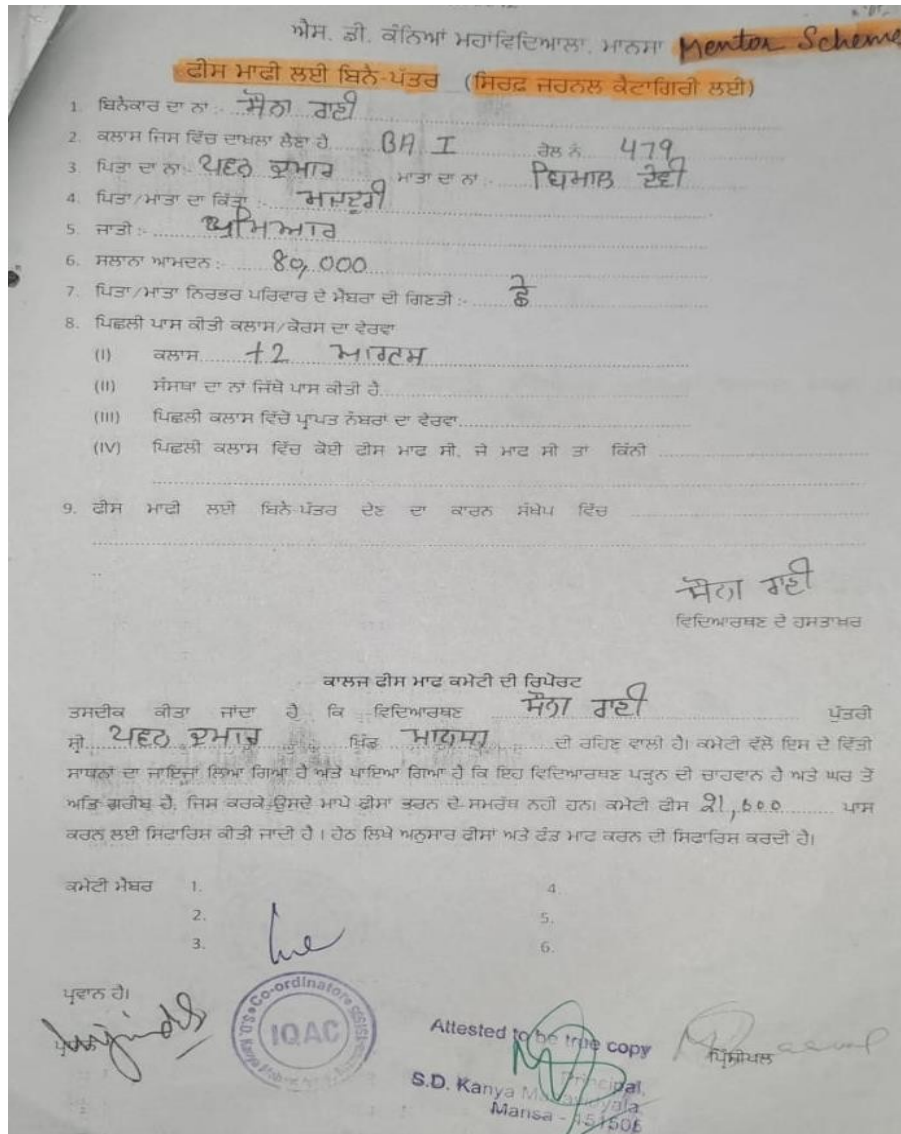 ਐਸ. ਡੀ. ਕੰਨਿਆਂ ਮਹਾਂਵਿਦਿਆਲਾ, ਮਾਨਸਾ Mentor Scheme
ਫੀਸ ਮਾਫੀ ਲਈ ਬਿਨੈ-ਪੱਤਰ (ਸਿਰਫ਼ ਜਰਨਲ ਕੈਟਾਗਿਰੀ ਲਈ)
1. ਬਿਨੈਕਾਰ ਦਾ ਨਾਂ :- ਸੋਨਾ ਰਾਣੀ
2. ਕਲਾਸ ਜਿਸ ਵਿੱਚ ਦਾਖਲਾ ਲੈਣਾ ਹੈ BA I ਰੋਲ ਨੰ. 479
3. ਪਿਤਾ ਦਾ ਨਾਂ:- ਪਵਨ ਕੁਮਾਰ ਮਾਤਾ ਦਾ ਨਾਂ :- ਦੇਵੀ
4. ਪਿਤਾ/ਮਾਤਾ ਦਾ ਕਿੱਤਾ :- ਮਜਦੂਰੀ
5. ਜਾਤੀ :-
6. ਸਲਾਨਾ ਆਮਦਨ :- 80,000
7. ਪਿਤਾ/ਮਾਤਾ ਨਿਰਭਰ ਪਰਿਵਾਰ ਦੇ ਮੈਂਬਰਾ ਦੀ ਗਿਣਤੀ :- ਛੇ
8. ਪਿਛਲੀ ਪਾਸ ਕੀਤੀ ਕਲਾਸ/ਕੋਰਸ ਦਾ ਵੇਰਵਾ
(I) ਕਲਾਸ +2 ਆਰਟਸ
(II) ਸੰਸਥਾ ਦਾ ਨਾਂ ਜਿੱਥੇ ਪਾਸ ਕੀਤੀ ਹੈ
(III) ਪਿਛਲੀ ਕਲਾਸ ਵਿੱਚੋਂ ਪ੍ਰਾਪਤ ਨੰਬਰਾਂ ਦਾ ਵੇਰਵਾ
(IV) ਪਿਛਲੀ ਕਲਾਸ ਵਿੱਚ ਕੋਈ ਫੀਸ ਮਾਫ ਸੀ, ਜੇ ਮਾਫ ਸੀ ਤਾਂ ਕਿੰਨੀ
9. ਫੀਸ ਮਾਫੀ ਲਈ ਬਿਨੈ-ਪੱਤਰ ਦੇਣ ਦਾ ਕਾਰਨ ਸੰਖੇਪ ਵਿੱਚ
ਸੋਨਾ ਰਾਣੀ
ਵਿਦਿਆਰਥਣ ਦੇ ਹਸਤਾਖਰ
ਕਾਲਜ ਫੀਸ ਮਾਫ ਕਮੇਟੀ ਦੀ ਰਿਪੋਰਟ
ਤਸਦੀਕ ਕੀਤਾ ਜਾਂਦਾ ਹੈ ਕਿ ਵਿਦਿਆਰਥਣ ਸੋਨਾ ਰਾਣੀ ਪੁੱਤਰੀ
ਸ੍ਰੀ ਪਵਨ ਕੁਮਾਰ ਪਿੰਡ ਮਾਨਸਾ ਦੀ ਰਹਿਣ ਵਾਲੀ ਹੈ। ਕਮੇਟੀ ਵੱਲੋਂ ਇਸ ਦੇ ਵਿੱਤੀ
ਸਾਧਨਾਂ ਦਾ ਜਾਇਜਾਂ ਲਿਆ ਗਿਆ ਹੈ ਅਤੇ ਪਾਇਆ ਗਿਆ ਹੈ ਕਿ ਇਹ ਵਿਦਿਆਰਥਣ ਪੜ੍ਹਨ ਦੀ ਚਾਹਵਾਨ ਹੈ ਅਤੇ ਘਰ ਤੋਂ
ਅਤਿ ਗਰੀਬ ਹੈ, ਜਿਸ ਕਰਕੇ ਉਸਦੇ ਮਾਪੇ ਫੀਸਾ ਭਰਨ ਦੇ ਸਮਰੱਥ ਨਹੀਂ ਹਨ। ਕਮੇਟੀ ਫੀਸ 21,600 ਪਾਸ
ਕਰਨ ਲਈ ਸਿਫਾਰਿਸ ਕੀਤੀ ਜਾਂਦੀ ਹੈ। ਹੇਠ ਲਿਖੇ ਅਨੁਸਾਰ ਫੀਸਾਂ ਅਤੇ ਫੰਡ ਮਾਫ ਕਰਨ ਦੀ ਸਿਫਾਰਿਸ ਕਰਦੀ ਹੈ।
ਕਮੇਟੀ ਮੈਂਬਰ 1. 4.
2. 5.
3. 6.
ਪ੍ਰਵਾਨ ਹੈ।
Co-ordinator
IQAC
Attested to be true copy
ਪ੍ਰਿੰਸੀਪਲ
Principal,
S.D. Kanya Mahavidyala,
Mansa - 151505